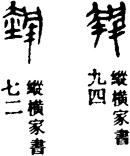 縱橫家書
九四
縱橫家書
七二